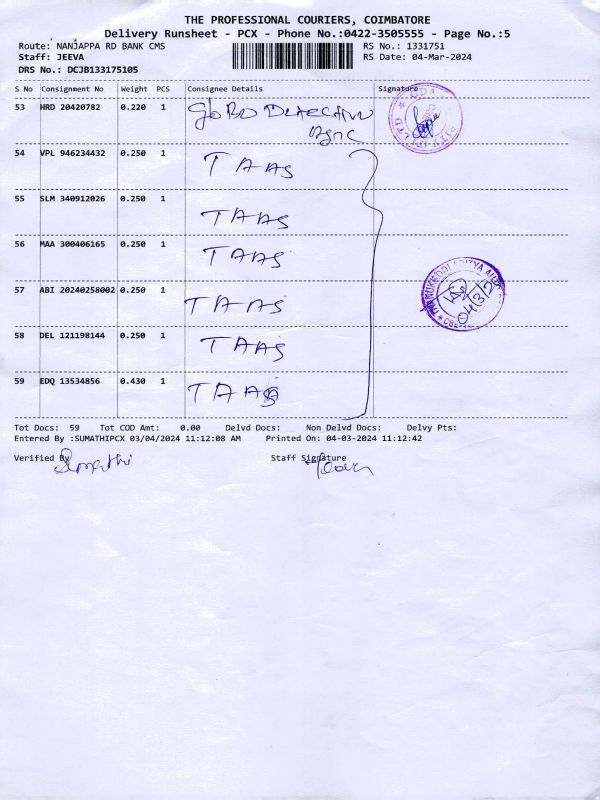 THE PROFESSIONAL COURIERS, COIMBATORE
Delivery Runsheet - PCX - Phone No.:0422-3505555 - Page No.:5
Route: NANJAPPA RD BANK CMS
RS No.: 1331751
Staff: JEEVA
RS Date: 04-Mar-2024
DRS No.: DCJB133175105
S No Consignment No Weight PCS Consignee Details Signature
53 HRD 20420782 0.220 1
54 VPL 946234432 0.250 1 TAAS
55 SLM 340912026 0.250 1 TAAS
56 MAA 300406165 0.250 1 TAAS
57 ABI 20240258002 0.250 1 TAAS
04/3/2
58 DEL 121198144 0.250 1 TAAS
59 EDQ 13534856 0.430 1 TAAS
Tot Docs: 59 Tot COD Amt: 0.00 Delvd Docs: Non Delvd Docs: Delvy Pts:
Entered By :SUMATHIPCX 03/04/2024 11:12:08 AM Printed On: 04-03-2024 11:12:42
Verified By Staff Signature
Sumathi